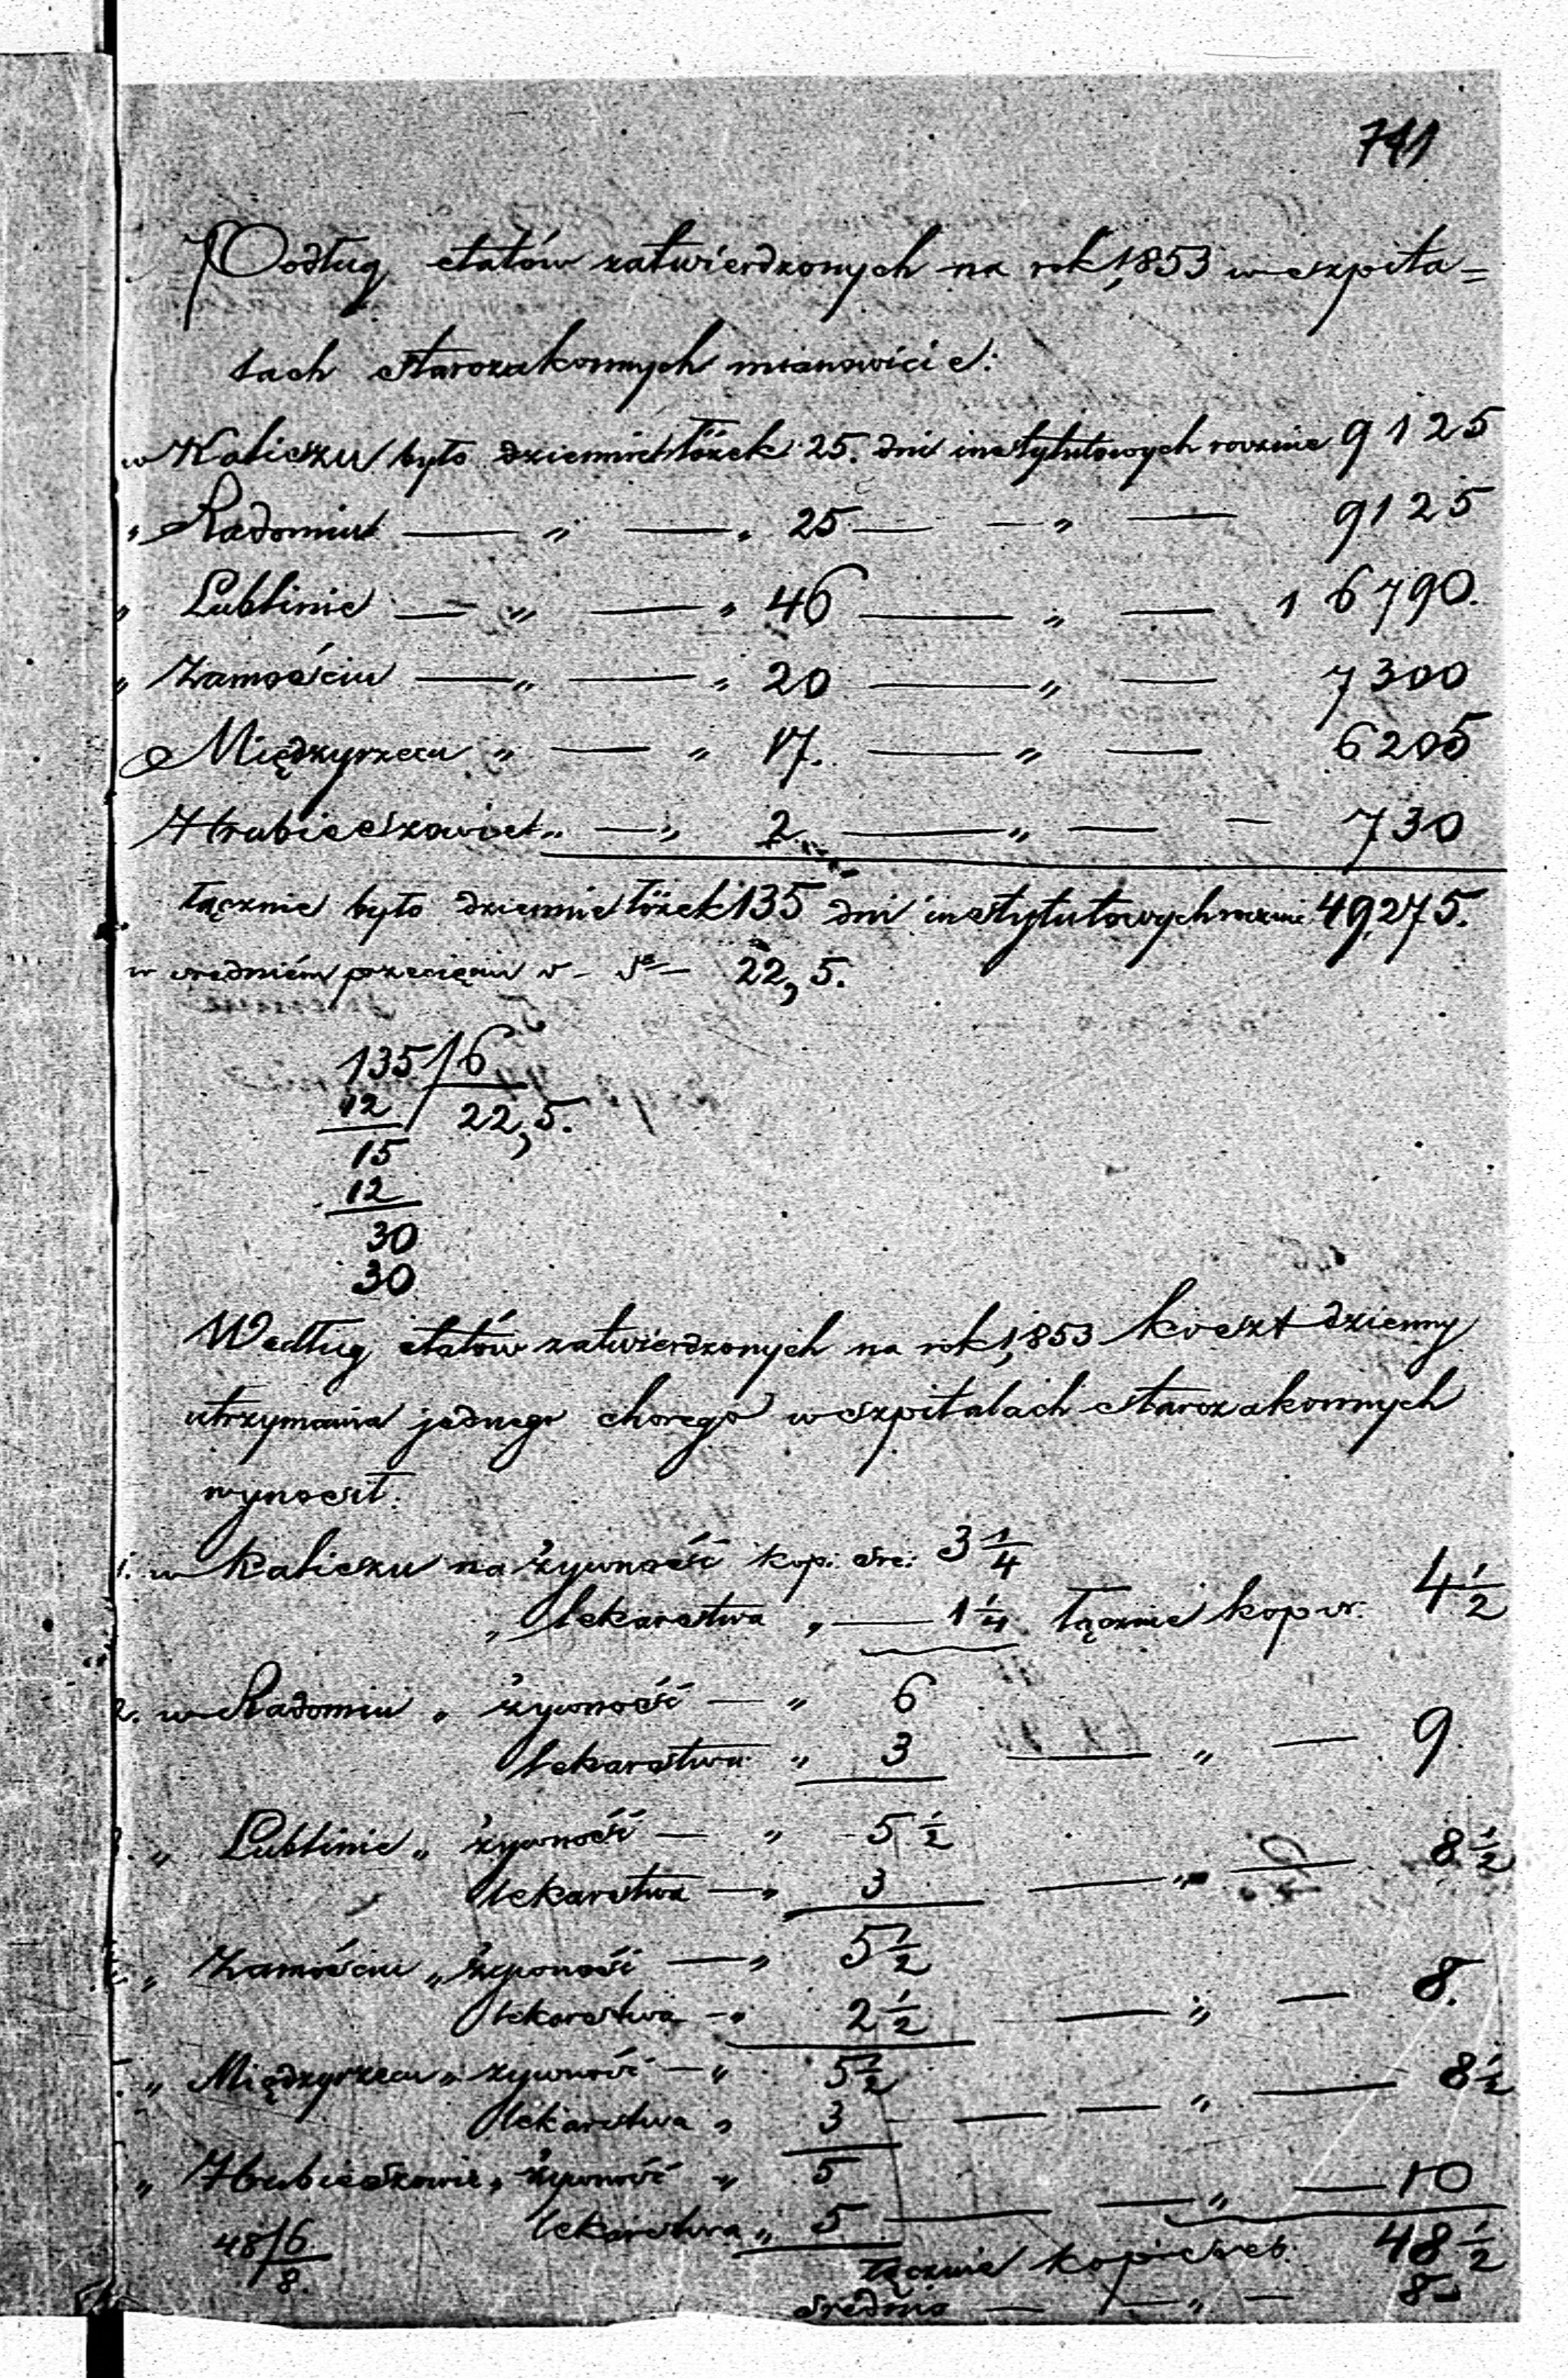 741
Podług etatów zatwierdzonych na rok 1,853 w szpita=
lach starozakonnych mianowicie:
w Kaliszu było dziennie łóżek 25. dni instytutowych rocznie 9125
„ Radomiu — „ — „ 25 — — „ — 9125
„ Lublinie — „ — „ 46 — „ — 16790.
„ Zamościu — „ — „ 20 — „ — 7300
Międzyrzecu „ — „ 17. — „ — 6205
Hrubieszowie „ — „ 2 — „ — — 730
łącznie było dziennie łóżek 135 dni instytutowych rocznie 49,275.
w średniém przecięciu 22,5.
135/6
12 22,5.
15
12
30
30
Według etatów zatwierdzonych na rok 1,853 koszt dzienny
utrzymania jednego chorego w szpitalach starozakonnych
wynosił:
1. w Kaliszu na żywność kop: sre: 3 1/4
„ lekarstwa „ — 1 1/4 łącznie kop sr: 4 1/2
2. w Radomiu „ żywność — „ 6
lekarstwa „ 3 — „ — 9.
„ Lublinie „ żywność — „ 5 1/2
lekarstwa — „ 3 — „ — 8 1/2
„ Zamościu „ żywność — „ 5 1/2
lekarstwa — „ 2 1/2 — „ — 8.
„ Międzyrzecu „ żywność — „ 5 1/2
lekarstwa „ 3 — — „ — 8 1/2
„ Hrubieszowie „ żywność „ 5
lekarstwa „ 5 — — „ — 10
48/6
8.
łącznie kopie sreb: 48 1/2
średnio — — „ — 8